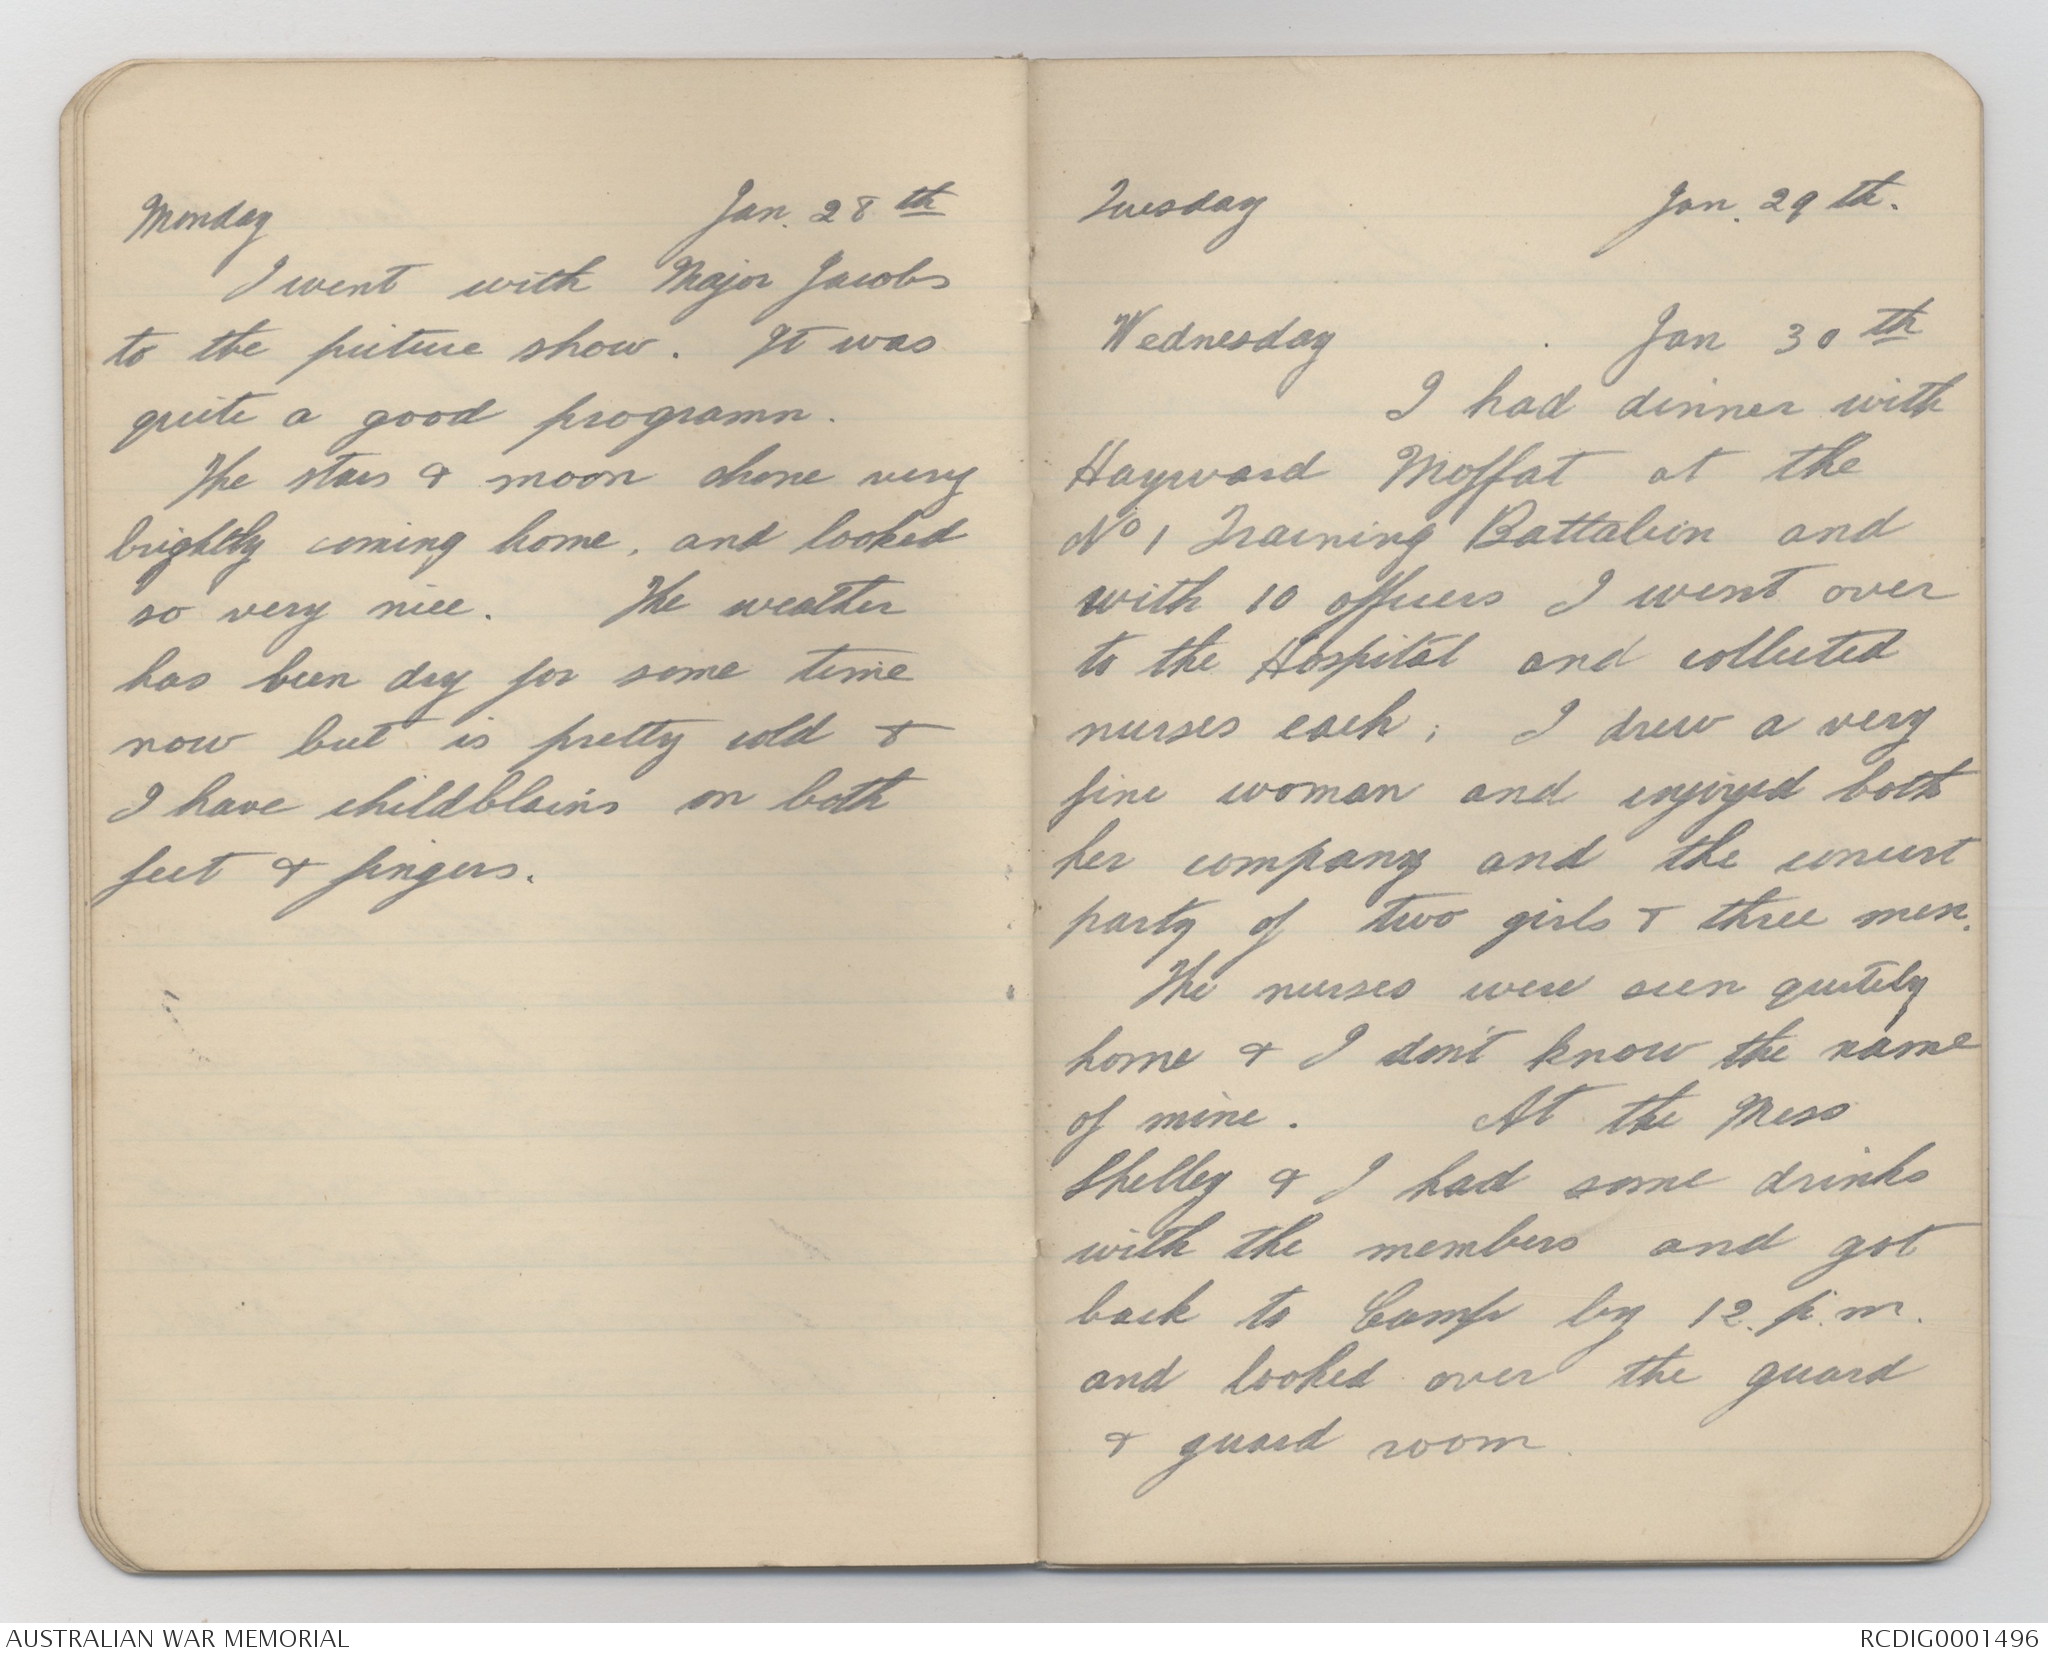 Monday Jan. 28th
I went with Major Jacobs
to the picture show. It was
quite a good programn.
The stars & moon shone very
brightly coming home, and looked
so very nice. The weather
has been dry for some time
now but is pretty cold &
I have childblains on both
feet & fingers.
Tuesday Jan. 29th.
Wednesday Jan 30th
I had dinner with
Hayward Moffat at the
No 1 Training Battalion and
with 10 officers I went over
to the Hospital and collected
nurses each; I drew a very
fine woman and enjoyed both
her company and the concert
party of two girls & three men.
The nurses were seen quitely
home & I don't know the name
of mine. At the Mess
Shelley & I had some drinks
with the members and got
back to Camp by 12. p.m.
and looked over the guard
& guard room.
AUSTRALIAN WAR MEMORIAL RCDIG0001496